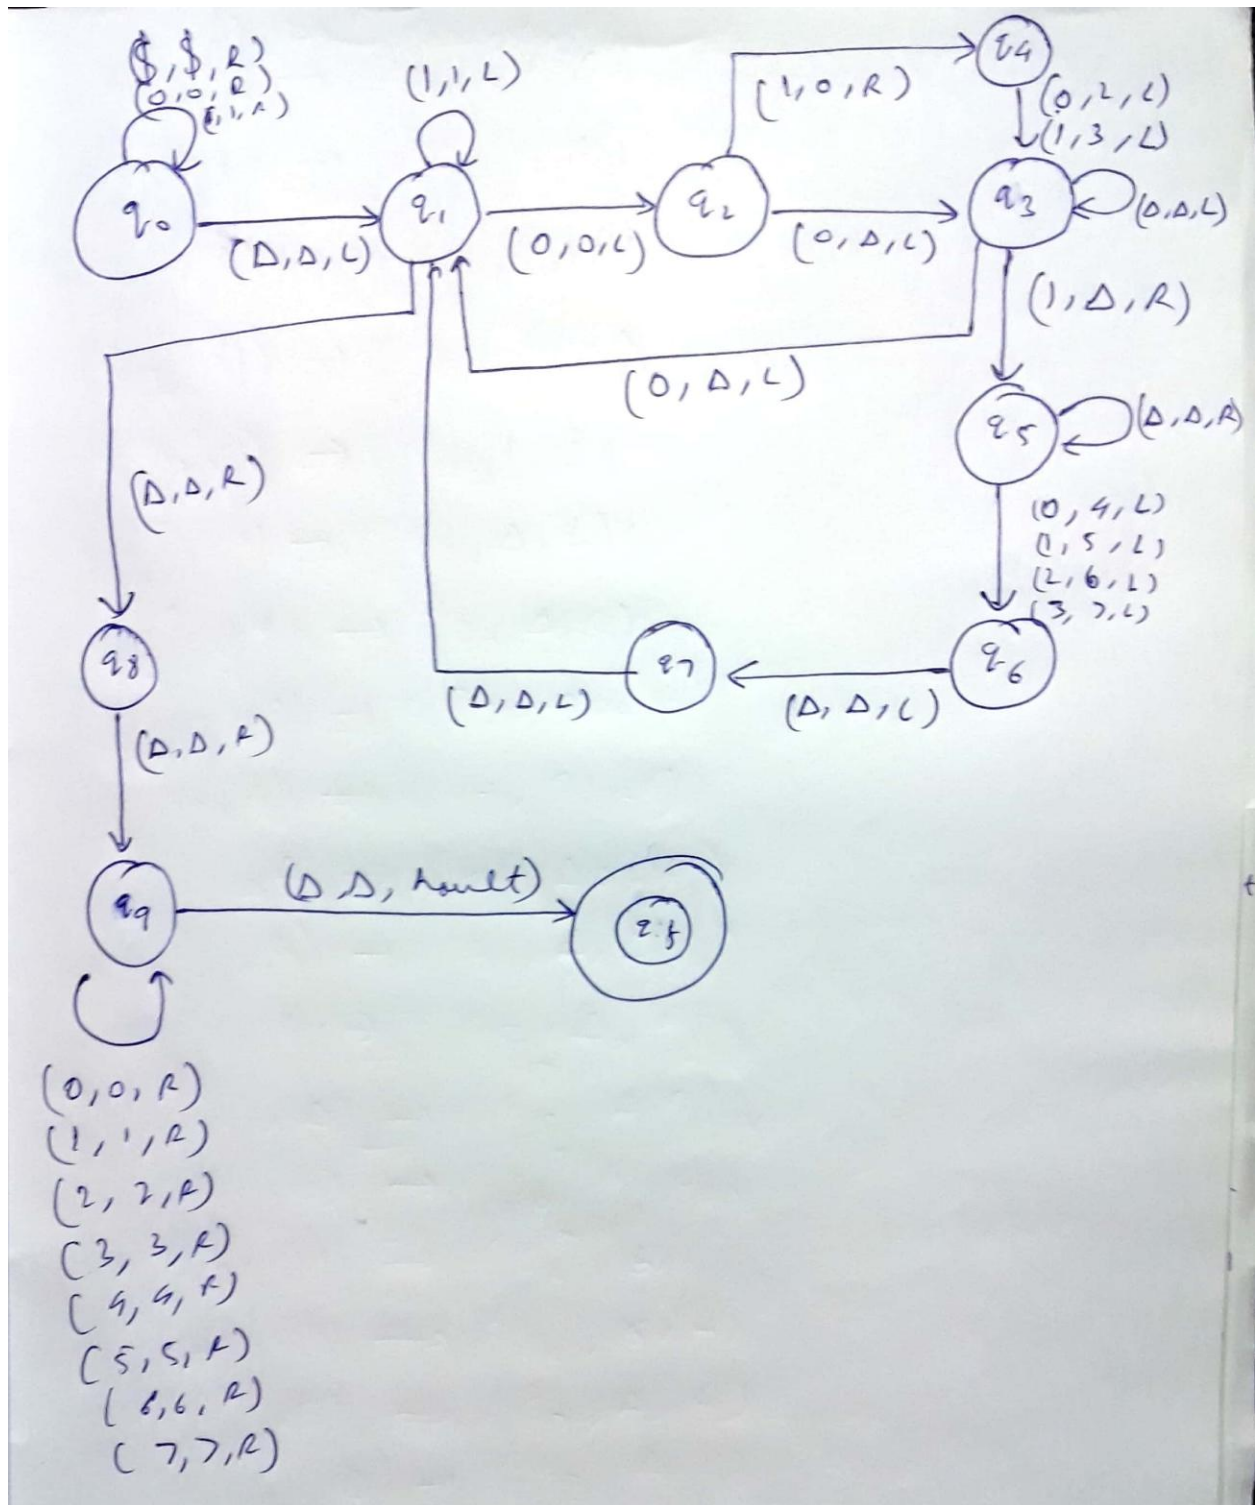 ($, $, R)
(0, 0, R)
(1, 1, R)
(1, 1, L)
(1, 0, R)
q4
(0, 2, L)
(1, 3, L)
q0
(Δ, Δ, L)
q1
(0, 0, L)
q2
(0, Δ, L)
q3
(Δ, Δ, L)
(1, Δ, R)
(0, Δ, L)
q5
(Δ, Δ, R)
(Δ, Δ, R)
(0, 4, L)
(1, 5, L)
(2, 6, L)
(3, 7, L)
q8
(Δ, Δ, L)
q7
(Δ, Δ, L)
q6
(Δ, Δ, R)
q9
(Δ Δ, hault)
qf
(0, 0, R)
(1, 1, R)
(2, 2, R)
(3, 3, R)
(4, 4, R)
(5, 5, R)
(6, 6, R)
(7, 7, R)